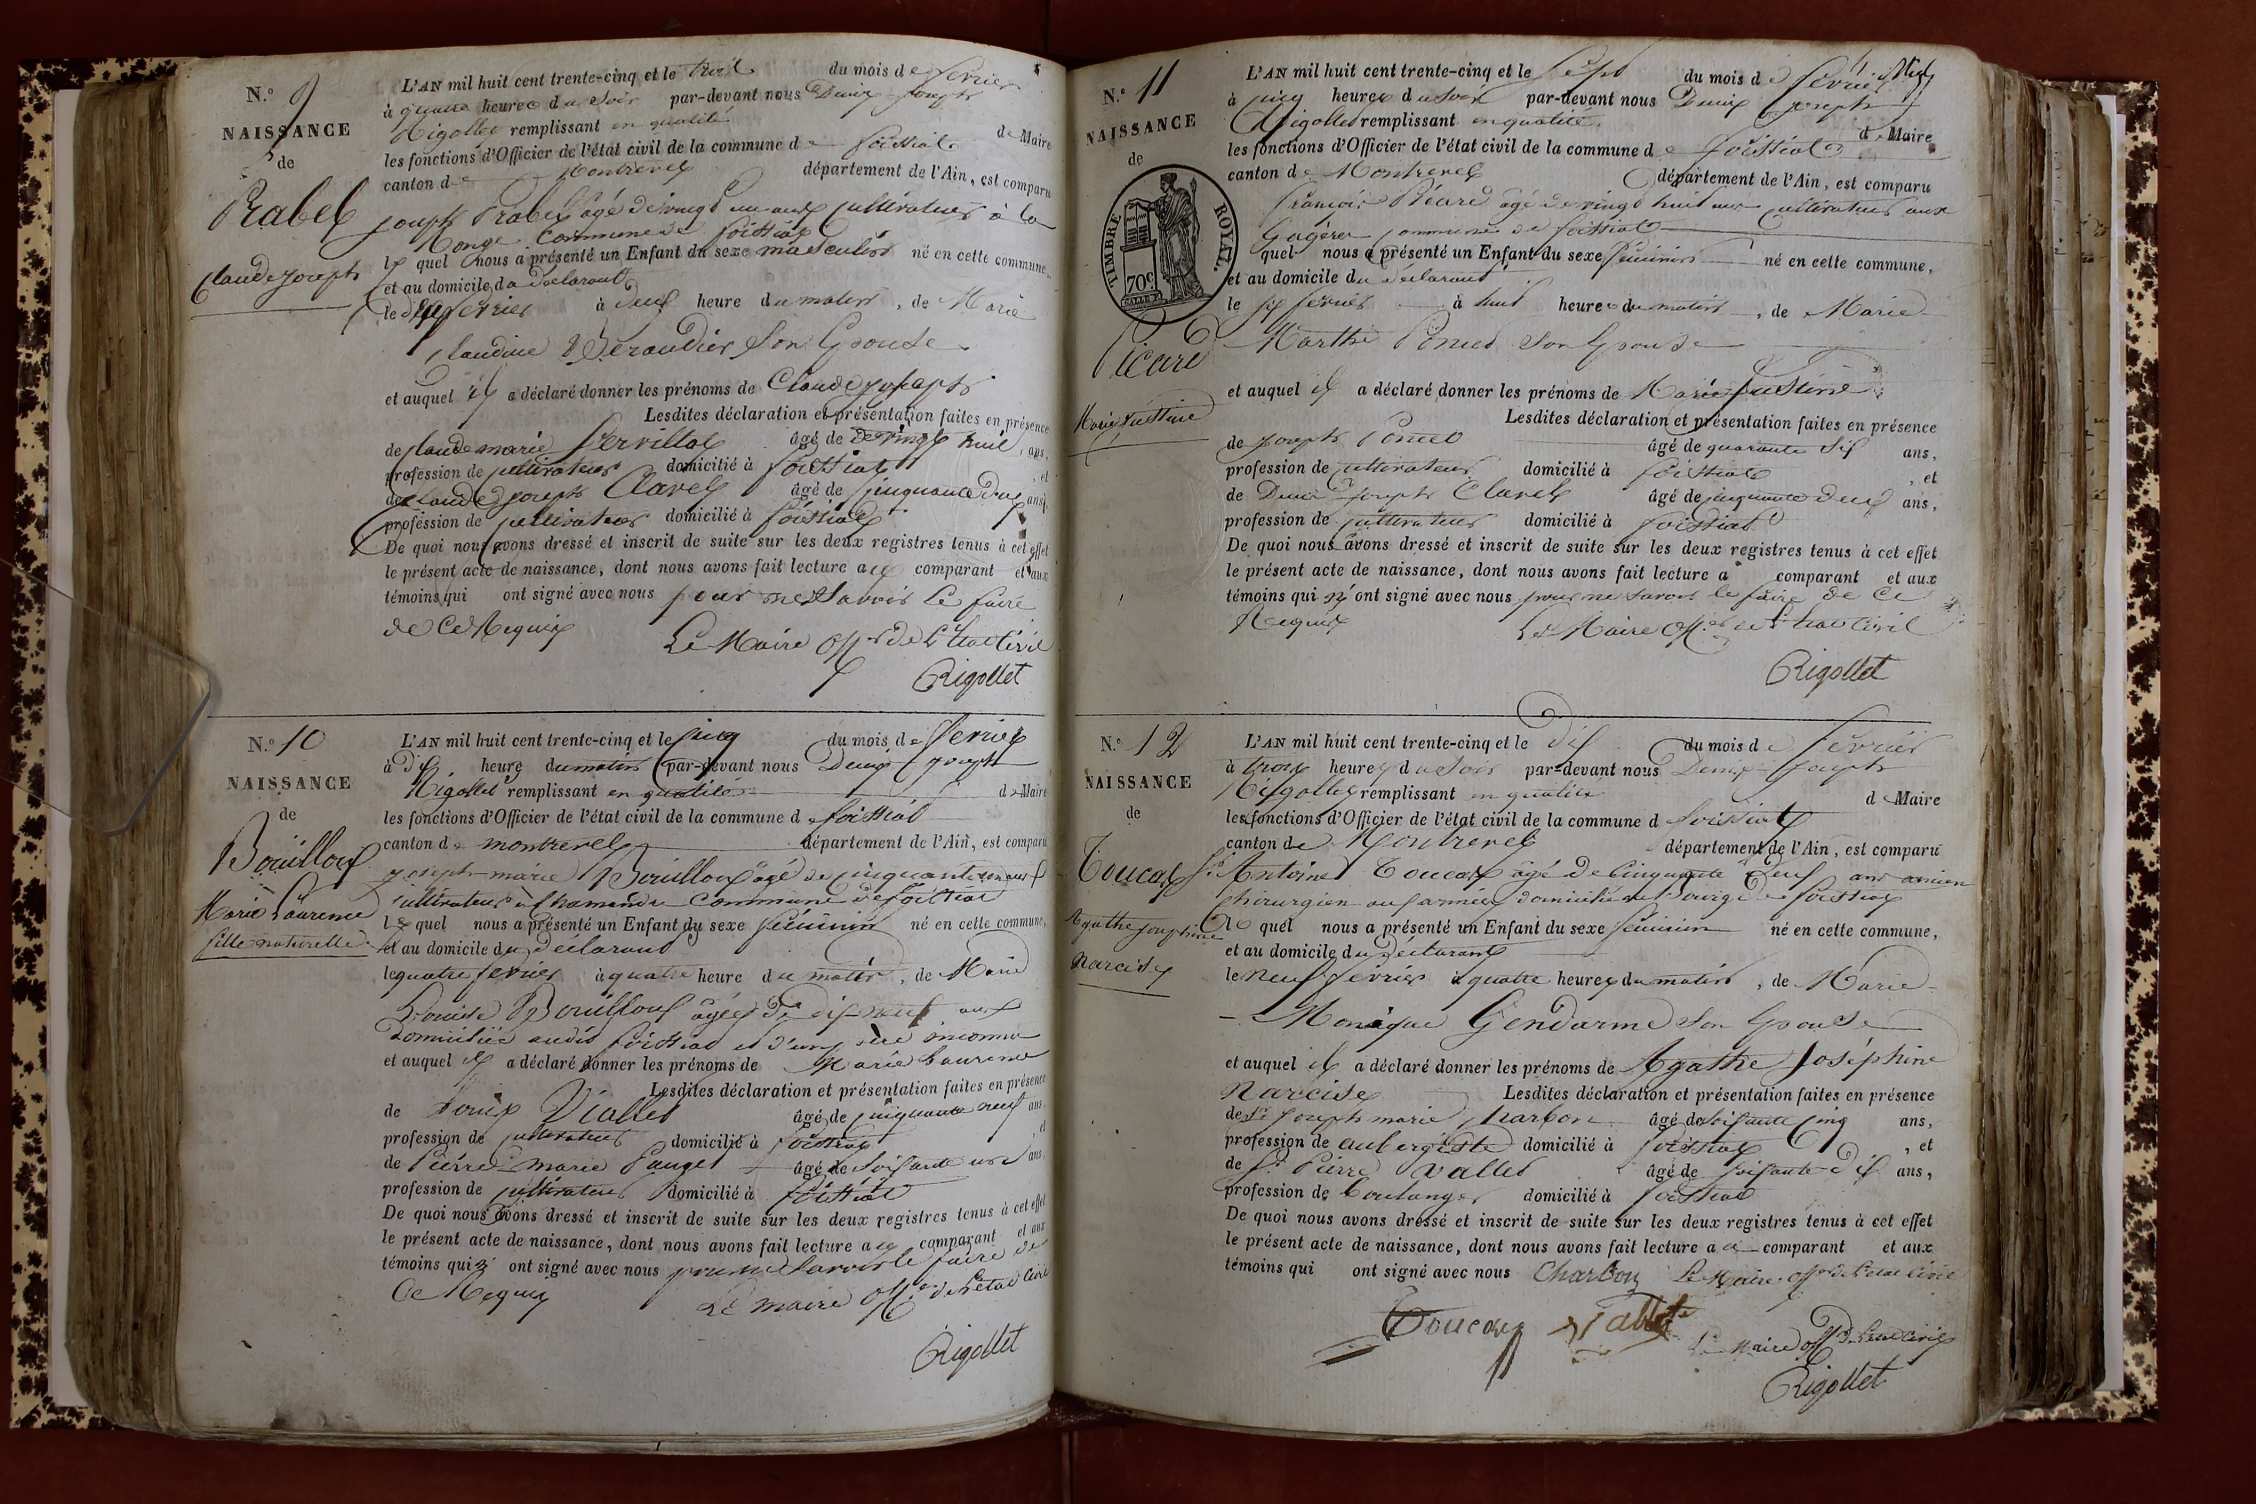 N.o 9
NAISSANCE
de
Rabel
Claude joseph
L'AN mil huit cent trente-cinq et le trois du mois de fevrier
à quatre heures du soir par-devant nous Denis joseph
Rigollet remplissant en qualité de Maire
les fonctions d'Officier de l'état civil de la commune de foissiat
canton de Montrevel département de l'Ain, est comparu
joseph Rabel âgé de vingt un ans cultivateur à la
Monge commune de foissiat
lequel nous a présenté un Enfant du sexe masculin né en cette commune,
et au domicile du déclarant
le fevrier à deux heure du matin, de Marie
Claudine Beraudier son Epouse
et auquel il a déclaré donner les prénoms de Claude joseph
Lesdites déclaration et présentation faites en présence
de Claude marie Pervillat âgé de vingt huit ans,
profession de cultivateur domicilié à foissiat, et
de Claude joseph Clavel âgé de cinquante deux ans,
profession de cultivateur domicilié à foissiat
De quoi nous avons dressé et inscrit de suite sur les deux registres tenus à cet effet
le présent acte de naissance, dont nous avons fait lecture au comparant et aux
témoins qui ont signé avec nous pour ne savoir le faire
de ce Requis
Le Maire Off.er de l'Etat Civil
Rigollet
N.o 10
NAISSANCE
de
Bouilloux
Marie Laurence
fille naturelle
L'AN mil huit cent trente-cinq et le cinq du mois de fevrier
à dix heure du matin par-devant nous Denis joseph
Rigollet remplissant en qualité de Maire
les fonctions d'Officier de l'état civil de la commune de foissiat
canton de montrevel département de l'Ain, est comparu
joseph-marie Bouilloux âgé de cinquante un ans
cultivateur commune de foissiat
lequel nous a présenté un Enfant du sexe féminin né en cette commune,
et au domicile du déclarant
le quatre fevrier à quatre heure du matin, de Marie
Louise Bouilloux âgée de dix-neuf ans
domiciliée audit foissiat et d'un père inconnu
et auquel il a déclaré donner les prénoms de Marie Laurence
Lesdites déclaration et présentation faites en présence
de Denis Viallet âgé de cinquante neuf ans
profession de cultivateur domicilié à foissiat, et
de Pierre-marie Pauget âgé de soixante un ans
profession de cultivateur domicilié à foissiat
De quoi nous avons dressé et inscrit de suite sur les deux registres tenus à cet effet
le présent acte de naissance, dont nous avons fait lecture au comparant et aux
témoins qui n' ont signé avec nous pour ne savoir le faire de
Ce Requis
Le maire Off.er de l'Etat Civil
Rigollet
N.o 11
NAISSANCE
de
TIMBRE ROYAL.
70c.
Picard
Marie Justine
L'AN mil huit cent trente-cinq et le sept du mois de fevrier
à cinq heures du soir par-devant nous Denis joseph
Rigollet remplissant en qualité de Maire
les fonctions d'Officier de l'état civil de la commune de foissiat
canton de Montrevel département de l'Ain, est comparu
François Picard âgé de vingt huit ans cultivateur aux
commune de foissiat
quel nous a présenté un Enfant du sexe féminin né en cette commune,
et au domicile du déclarant
le six fevrier à huit heures du matin, de Marie
Marthe Poncet son Epouse
et auquel il a déclaré donner les prénoms de Marie Justine
Lesdites déclaration et présentation faites en présence
de joseph Poncet âgé de quarante six ans,
profession de cultivateur domicilié à foissiat, et
de Denis joseph Clavel âgé de cinquante deux ans,
profession de cultivateur domicilié à foissiat
De quoi nous avons dressé et inscrit de suite sur les deux registres tenus à cet effet
le présent acte de naissance, dont nous avons fait lecture a comparant et aux
témoins qui n' ont signé avec nous pour ne savoir le faire de ce
Requis
Le Maire Off.er de l'Etat Civil
Rigollet
N.o 12
NAISSANCE
de
Toucas
Agathe Josephine
Narcise
L'AN mil huit cent trente-cinq et le dix du mois de février
à trois heures du soir par-devant nous Denis joseph
Rigollet remplissant en qualité de Maire
les fonctions d'Officier de l'état civil de la commune d foissiat
canton de Montrevel département de l'Ain, est comparu
Sr Antoine Toucas âgé de cinquante neuf ans ancien
chirurgien aux armées domicilié au Bourg de foissiat
le quel nous a présenté un Enfant du sexe féminin né en cette commune,
et au domicile du déclarant
le neuf fevrier à quatre heures du matin, de Marie
Monique Gendarme son Epouse
et auquel il a déclaré donner les prénoms de Agathe Joséphine
Narcise Lesdites déclaration et présentation faites en présence
de Sr joseph marie Charbon âgé de soixante cinq ans,
profession de aubergiste domicilié à foissiat, et
de Sr Pierre Vallet âgé de soixante-dix ans,
profession de boulanger domicilié à foissiat
De quoi nous avons dressé et inscrit de suite sur les deux registres tenus à cet effet
le présent acte de naissance, dont nous avons fait lecture au comparant et aux
témoins qui ont signé avec nous Charbon Le Maire Off.er de l'Etat Civil
Toucas Vallet
Le Maire Off.er de l'Etat Civil
Rigollet